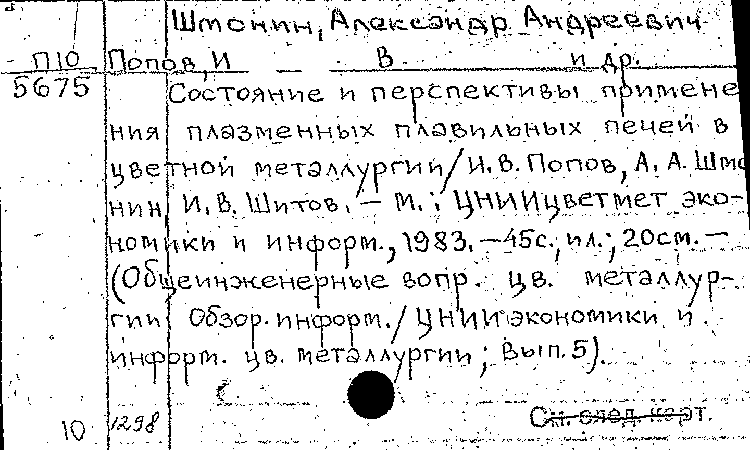 Шмонин, Александр Андреевич
П10 Попов, И В. и др.
5675 Состояние и перспективы примене
ния плазменных плавильных печей в
цветной металлургии/И.В.Попов, А. А. Шмо
нин, И.В. Шитов. — М.: ЦНИИцветмет эко-
номики и информ., 1983. —45с., ил.; 20см. —
(Общеинженерные вопр. цв. металлур-
гии Обзор. информ./ ЦНИИ экономики и
информ. цв. металлургии; Вып.5).
См. след. карт.
10 1298